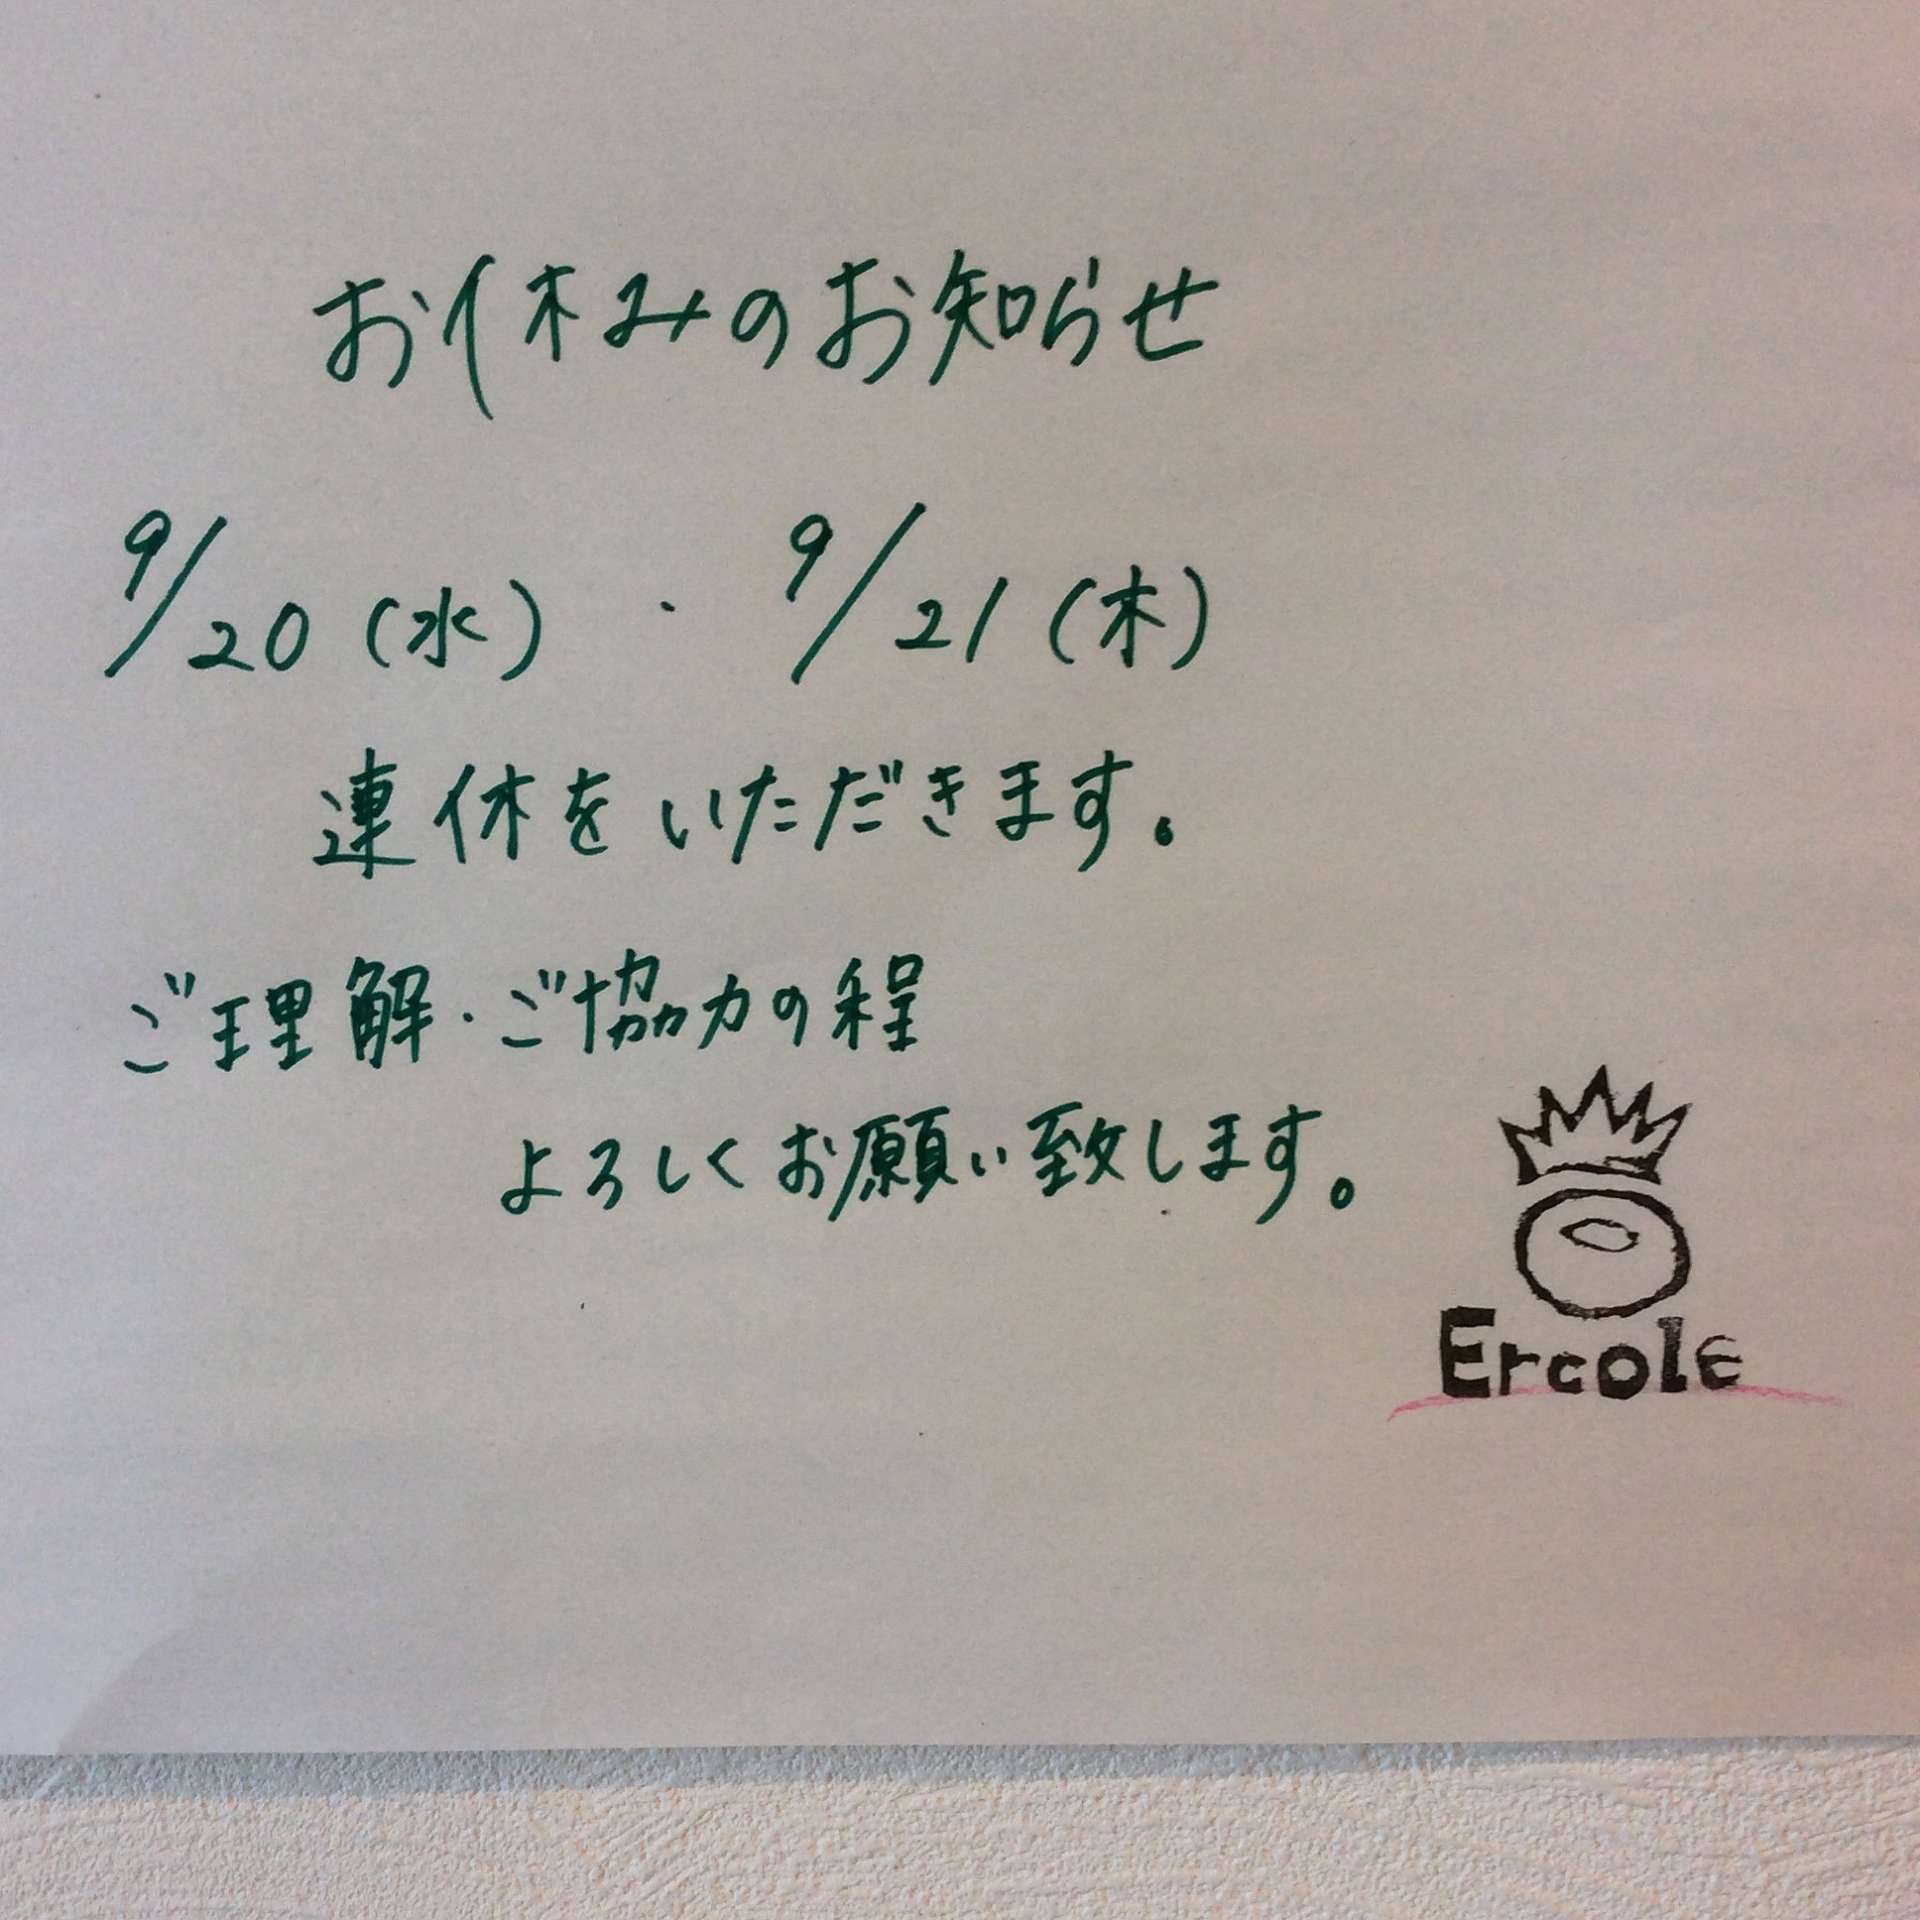 お休みのお知らせ
9/20(水)・9/21(木)
連休をいただきます。
ご理解・ご協力の程
よろしくお願い致します。
Ercole